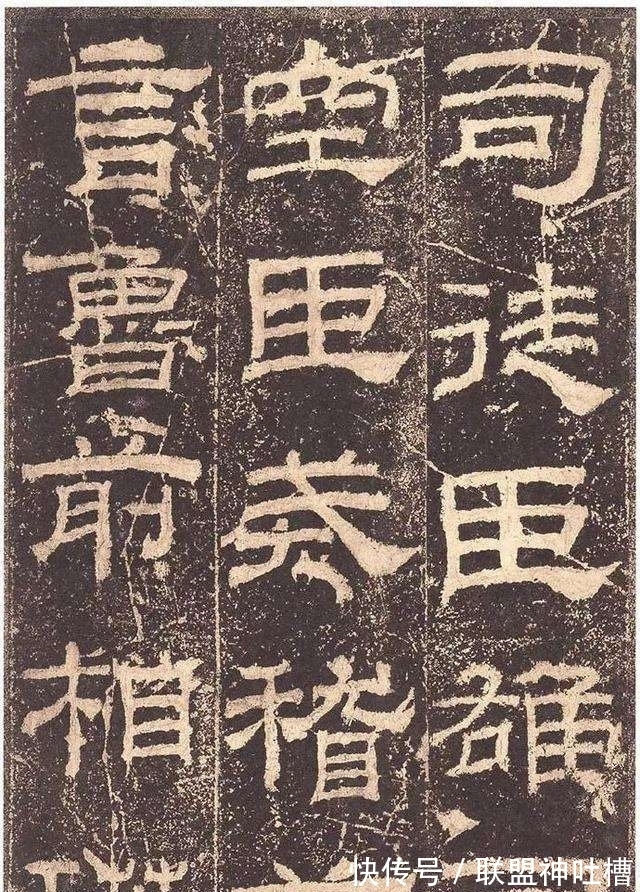 司徒臣雄
空臣戒稽
言魯前相
快传号 / 联盟神吐槽